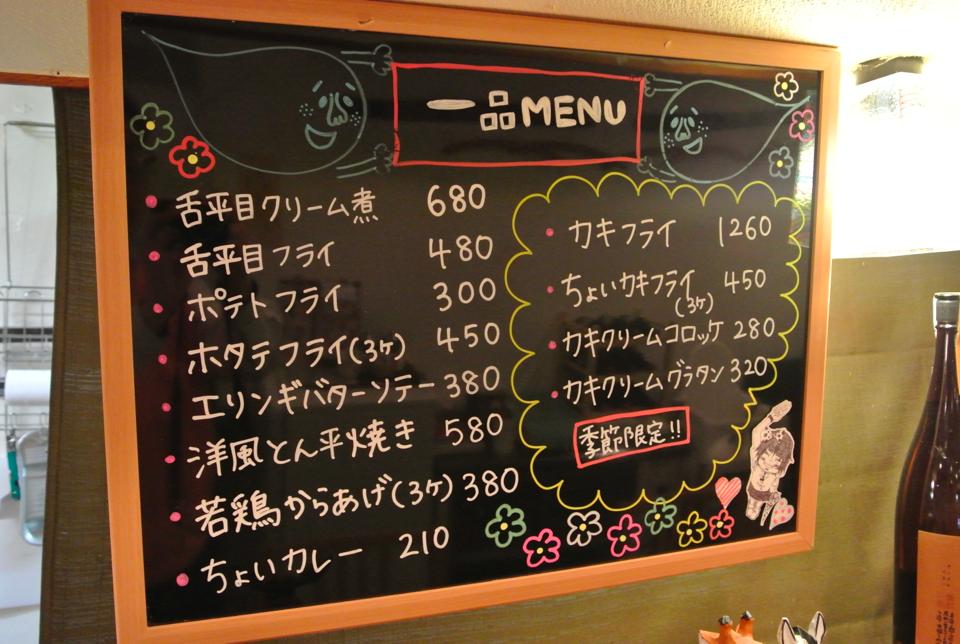 一品MENU
舌平目クリーム煮 680
舌平目フライ 480
ポテトフライ 300
ホタテフライ(3ケ) 450
エリンギバターソテー 380
洋風とん平焼き 580
若鶏からあげ(3ケ) 380
ちょいカレー 210
カキフライ 1260
ちょいカキフライ 450
(3ケ)
カキクリームコロッケ 280
カキクリームグラタン 320
季節限定!!